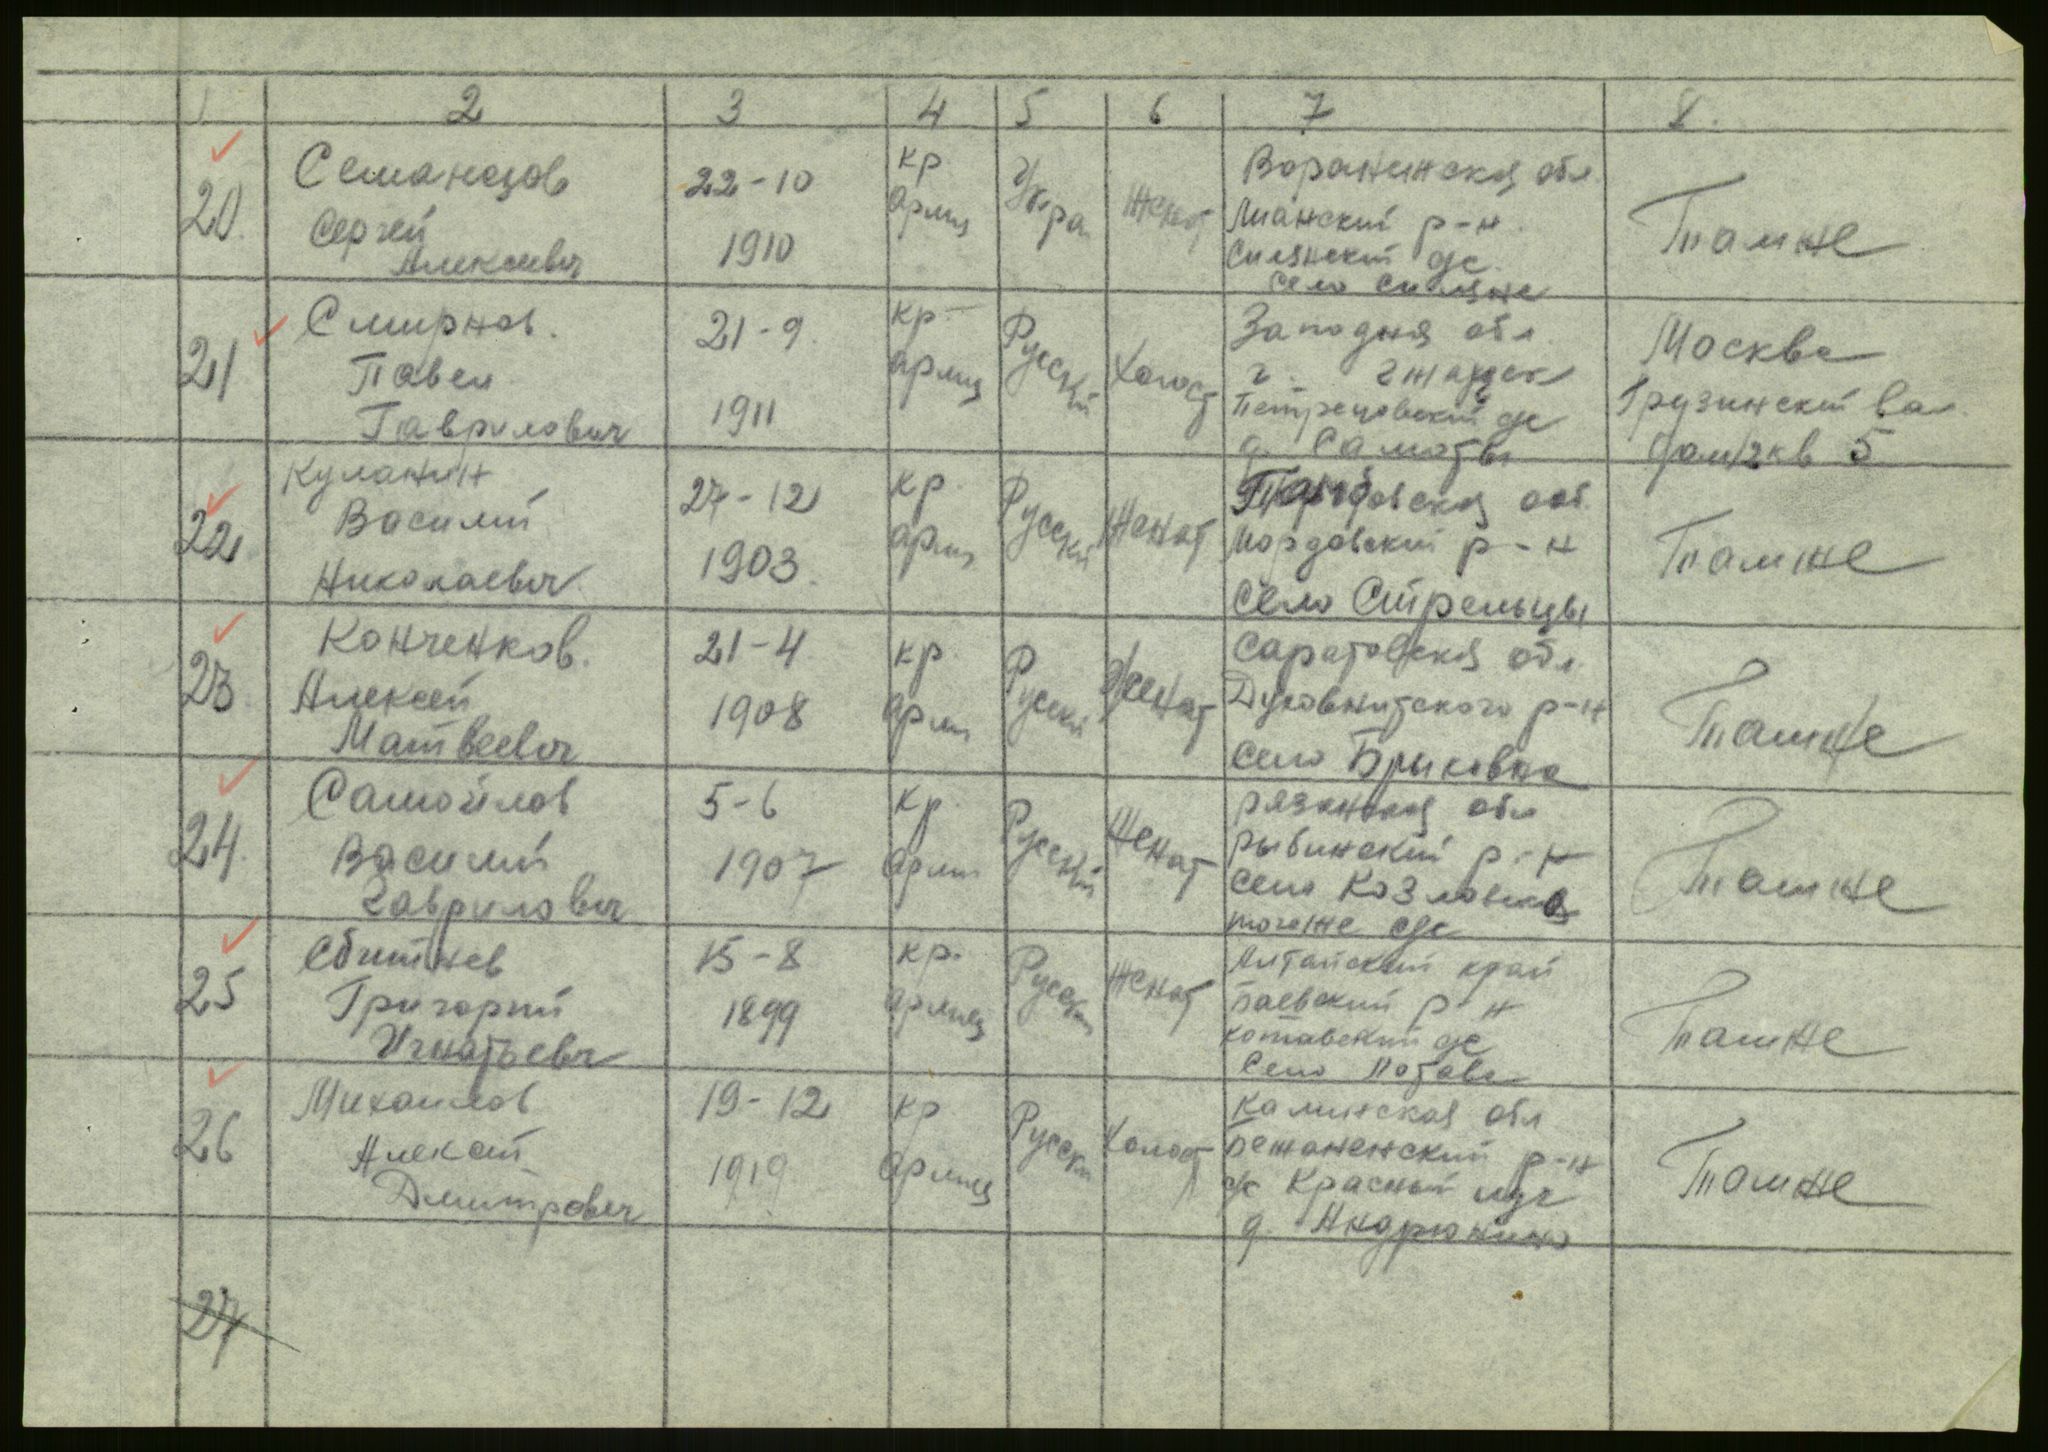 1 2 3 4 5 6 7 8.
20. Семанцов Сергей Алексеевич 22-10 1910 кр армиц Укра Женат Воранинская обл. р-н. с/с. село Тамже
21 Смирнов. Павел Гаврилович 21-9. 1911 кр армиц Русский Холост Западня обл. г. гжатск Петрецовский с/с д. Самотвы Москва Грузинский вал. дом 12 кв 5
22 Куланин Василий Николаевич. 27-12 1903. кр. армиц Русский Женат Тамбовская обл. Мордовский р-н село Стрельцы Тамже
23. Конченков. Алексей Матвеевич 21-4 1908 кр арми Русский Женат Саратовская обл. Духовнитского р-н село Брыковка Тамже
24. Самойлов Василий Гаврилович 5-6 1907 кр. арми Русский Женат рязанская обл рыбинский р-н село Козловка тогоже с/с Тамже
25 Сбитнев Григорий Игнатьевич 15-8 1899 кр. армиец Русский Женат Алтайский край Баевский р-н с/с Село Тамже
26 Михаилов Алексей Дмитрович 19-12 1919 кр армиц Русский Холост Калинская обл Бежаненский р-н с/с Красный луч д. Андрюнино Тамже
27